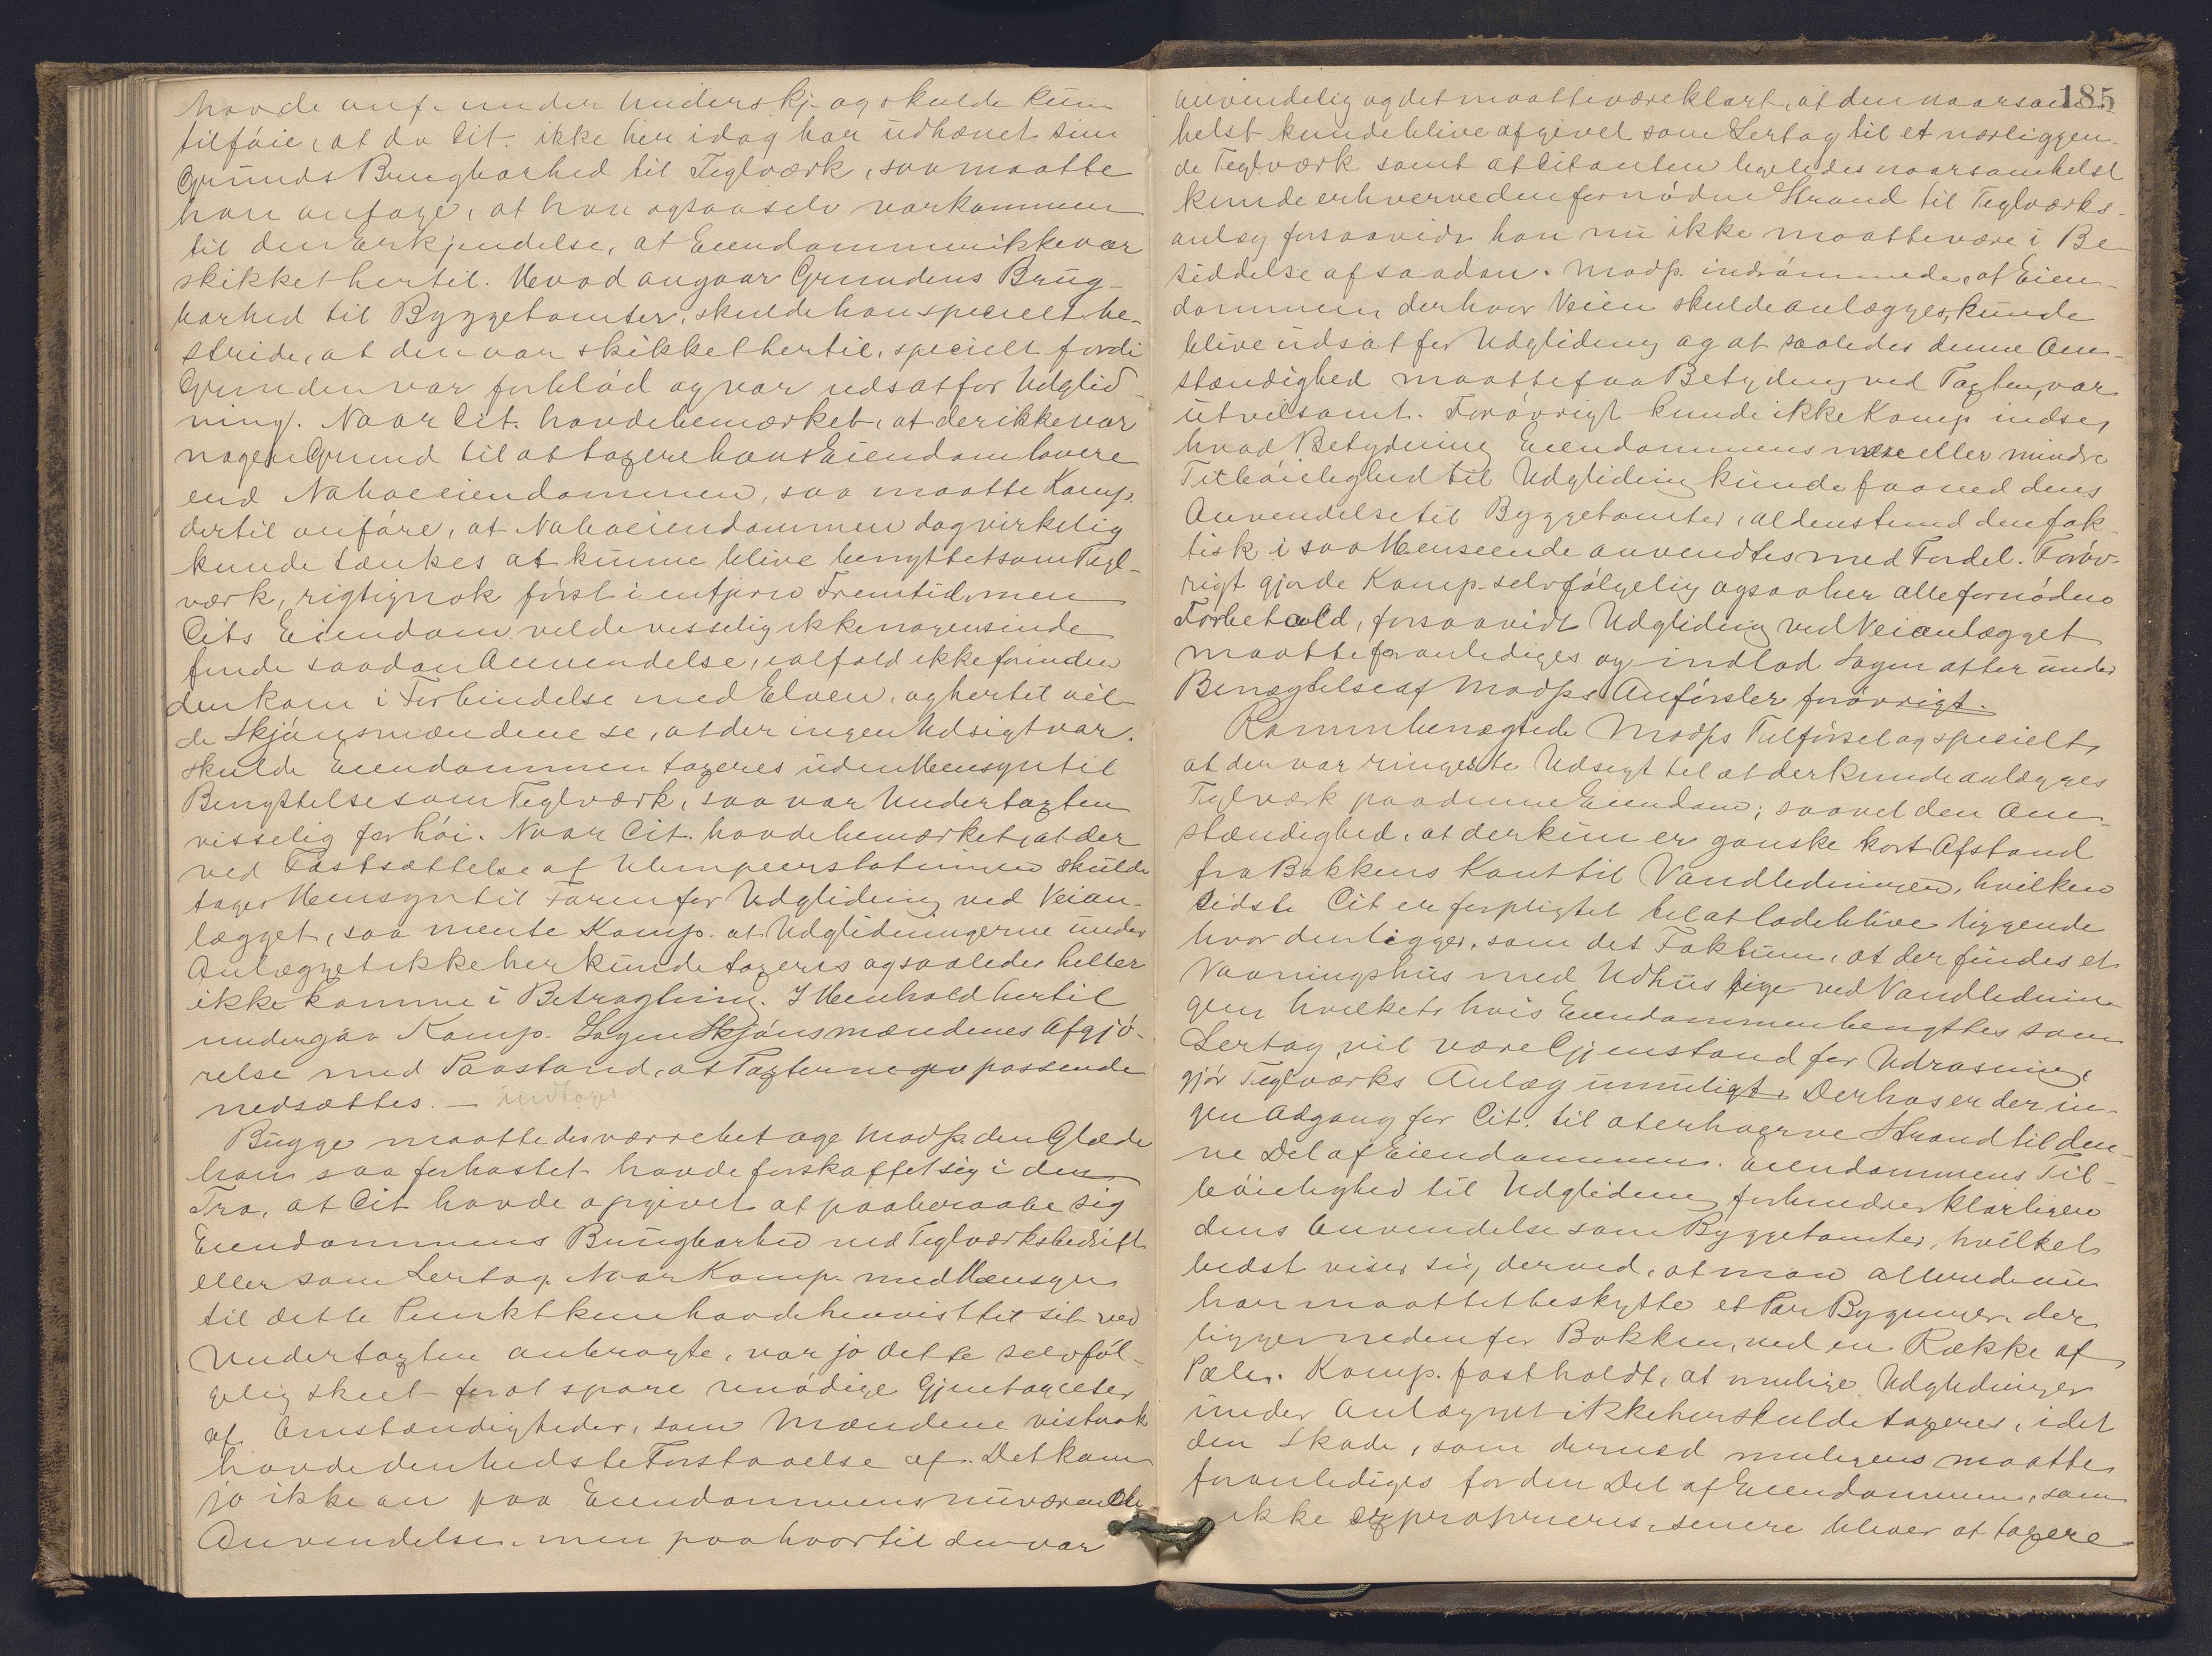 havde anf. under Underskj. og skulde kun
tilføie, at da Cit. ikke her idag har udhævet sin
Grunds Brugbarhed til Teglværk, saa maatte
han antage, at han ogsaa selv var kommen
til den Erkjendelse, at Eiendommen ikke var
skikket hertil. Hvad angaar Grundens Brug-
barhed til Byggetomter, skulde han specielt be-
stride, at den var skikket hertil, specielt fordi
Grunden var forblød og var udsat for Udglid-
ning. Naar Cit. havde bemærket, at der ikke var
nogen Grund til at taxere hans Eiendom lavere
end Naboeiendommen, saa maatte Kamp.
dertil anføre, at Naboeiendommen dog virkelig
kunde tænkes at kunne blive benyttet som Tegl-
værk, rigtignok først i en fjern Fremtid, men
Cits Eiendom vilde visselig ikke nogensinde
finde saadan Anvendelse, ialfald ikke forinden
den kom i Forbindelse med Elven, og hertil vil-
de Skjønsmændene se, at der ingen Udsigt var.
Skulde Eiendommen taxeres uden Hensyn til
Benyttelse som Teglværk, saa var Undertaxten
visselig for høi. Naar Cit. havde bemærket, at der
ved Fastsættelse af Ulempeerstatningen skulde
tages Hensyn til Faren for Udglidning ved Veian-
lægget, saa mente Kamp. at Udglidningerne under
Anlægget ikke her kunde taxeres og saaledes heller
ikke komme i Betragtning. I Henhold hertil
undergav Kamp. Sagen Skjønsmændenes Afgjø-
relse med Paastand, at Taxterne passende
nedsættes. – indtages
Bugge maatte desværre betage Modp. den Glæde
han saa forhastet havde forskaffet sig i den
Tro, at Cit havde opgivet at paaberaabe sig
Eiendommens Brugbarhed ved Teglværksbedrift
eller som Lertag. Naar Kamp. med Hensyn
til dette Punkt kun havde henvist til sit ved
Undertaxten anbragte, var jo dette selvføl-
gelig skeet for at spare unødige Gjentagelser
af Omstændigheder, som Mændene vistnok
havde den bedste Forstaaelse af. Det kom
jo ikke an paa Eiendommens nuværende
Anvendelse, men paa hvortil den var
185
anvendelig og det maatte være klart, at den naarsom-
helst kunde blive afgivet som Lertag til et nærliggen-
de Teglværk samt at Citanten ligeledes naarsomhelst
kunde erhverve den fornødne Strand til Teglværks-
anlæg forsaavidt han nu ikke maatte være i Be-
siddelse af saadan. Modp. indrømmede, at Eien-
dommen, derhvor Veien skulde anlægges, kunde
blive udsat for Udglidning og at saaledes denne Om-
stændighed maatte faa Betydning ved Taxten, var
utvilsomt. Forøvrigt kunde ikke Kamp indse,
hvad Betydning Eiendommens mere eller mindre
Tilbøielighed til Udglidning kunde faa ved dens
Anvendelse til Byggetomter, aldenstund den fak-
tisk i saa Henseende anvendtes med Fordel. Forøv-
rigt gjorde Komp. selvfølgelig ogsaa her alle fornødne
Forbehold, forsaavidt Udglidning ved Veianlægget
maatte foranlediges og indlod Sagen atter under
Benægtelse af Modps Anførsler forøvrigt.
Ramm benægtede Modps Tilførsel og specielt,
at der var ringeste Udsigt til at der kunde anlægges
Teglværk paa denne Eiendom; saavel den Om-
stændighed, at der kun er ganske kort Afstand
fra Bakkens Kant til Vandledningen, hvilken
sidste Cit er forpligtet til at lade blive liggende
hvor den ligger, som det Faktum, at der findes et
Vaaningshus med Udhus lige ved Vandlednin-
gen hvilket, hvis Eiendommen benyttes som
Lertag, vil være Gjenstand for Udrasning,
gjør Teglværks Anlæg umuligt. Derhos er der in-
gen Adgang for Cit. til at erhverve Strand til den-
ne Del af Eiendommen. Eiendommens Til-
bøielighed til Udglidning forhindrer klarligen
dens Anvendelse som Byggetomter, hvilket
bedst viser sig derved, at man allerede nu
har maattet beskytte et Par Bygninger, der
ligger nedenfor Bakken, ved en Række af
Pæle. Komp. fastholdt, at mulige Udglidninger
under Anlægget ikke her skulde taxeres, idet
den Skade, som derved muligens maatte
foranlediges for den Del af Eiendommen, som
ikke exproprieres, senere bliver at taxere